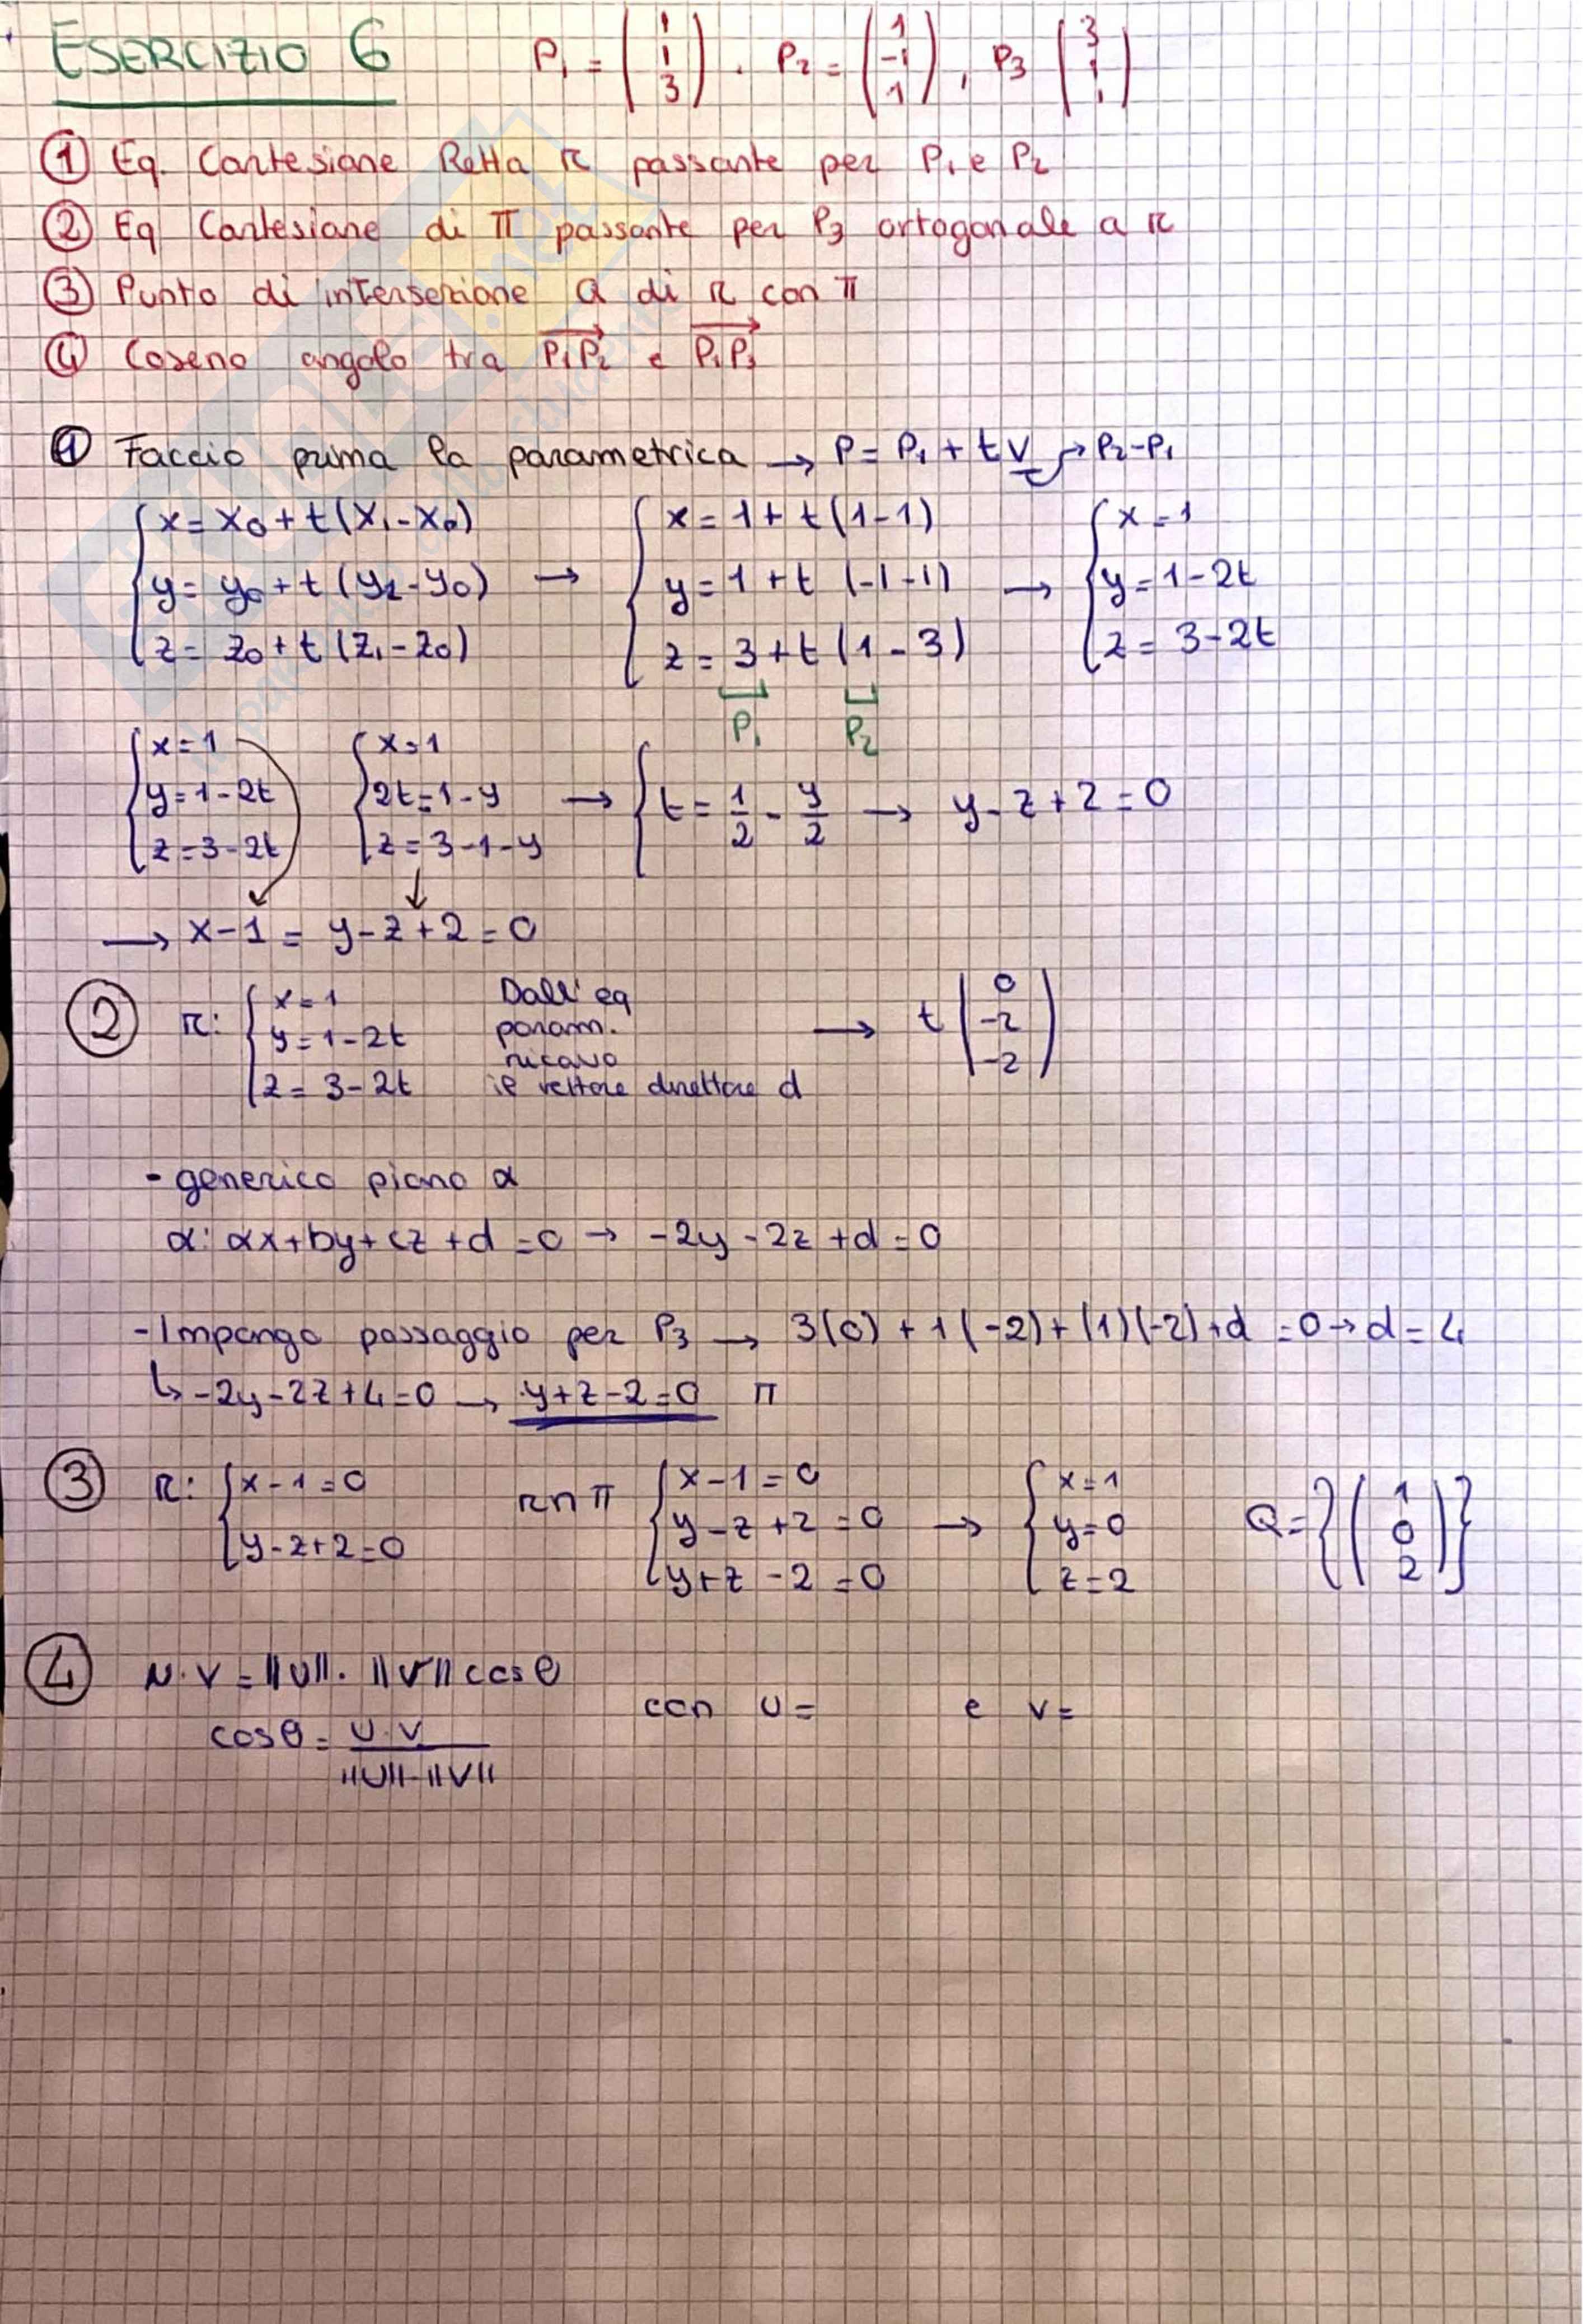 ESERCIZIO 6 P₁ = (1 1 3) . P₂ = (1 -1 1) , P₃ (3 1 1)
① Eq. Cartesiane Retta r passante per P₁ e P₂
② Eq Cartesiane di π passante per P₃ ortogonale a r
③ Punto di intersezione Q di r con π
④ Coseno angolo tra P₁P₂ e P₁P₃
① Faccio prima la parametrica → P = P₁ + t v → P₂-P₁
{ x = x₀ + t(x₁-x₀) { x = 1 + t(1-1) { x = 1
{ y = y₀ + t(y₁-y₀) → { y = 1 + t (-1-1) → { y = 1-2t
{ z = z₀ + t(z₁-z₀) { z = 3 + t(1-3) { z = 3-2t
P₁ P₂
{ x = 1 { x = 1
{ y = 1-2t { 2t = 1-y → { t = 1/2 - y/2 → y - z + 2 = 0
{ z = 3-2t { z = 3-1-y
→ x-1 = y-z+2 = 0
② r: { x = 1 Dall'eq
{ y = 1-2t param. → t (0 -2 -2)
ricavo
{ z = 3-2t il vettore direttore d
- generico piano α
α: αx+by+cz+d=0 → -2y-2z+d=0
- Impongo passaggio per P₃ → 3(0) + 1(-2) + (1)(-2) + d = 0 → d = 4
↳ -2y-2z+4=0 → y+z-2=0 π
③ r: { x-1=0 r∩π { x-1=0 { x=1
{ y-z+2=0 { y-z+2=0 → { y=0 Q = {(1 0 2)}
{ y+z-2=0 { z=2
④ u·v = ||u||·||v|| cosθ
con u= e v=
cosθ = u·v / ||u||·||v||